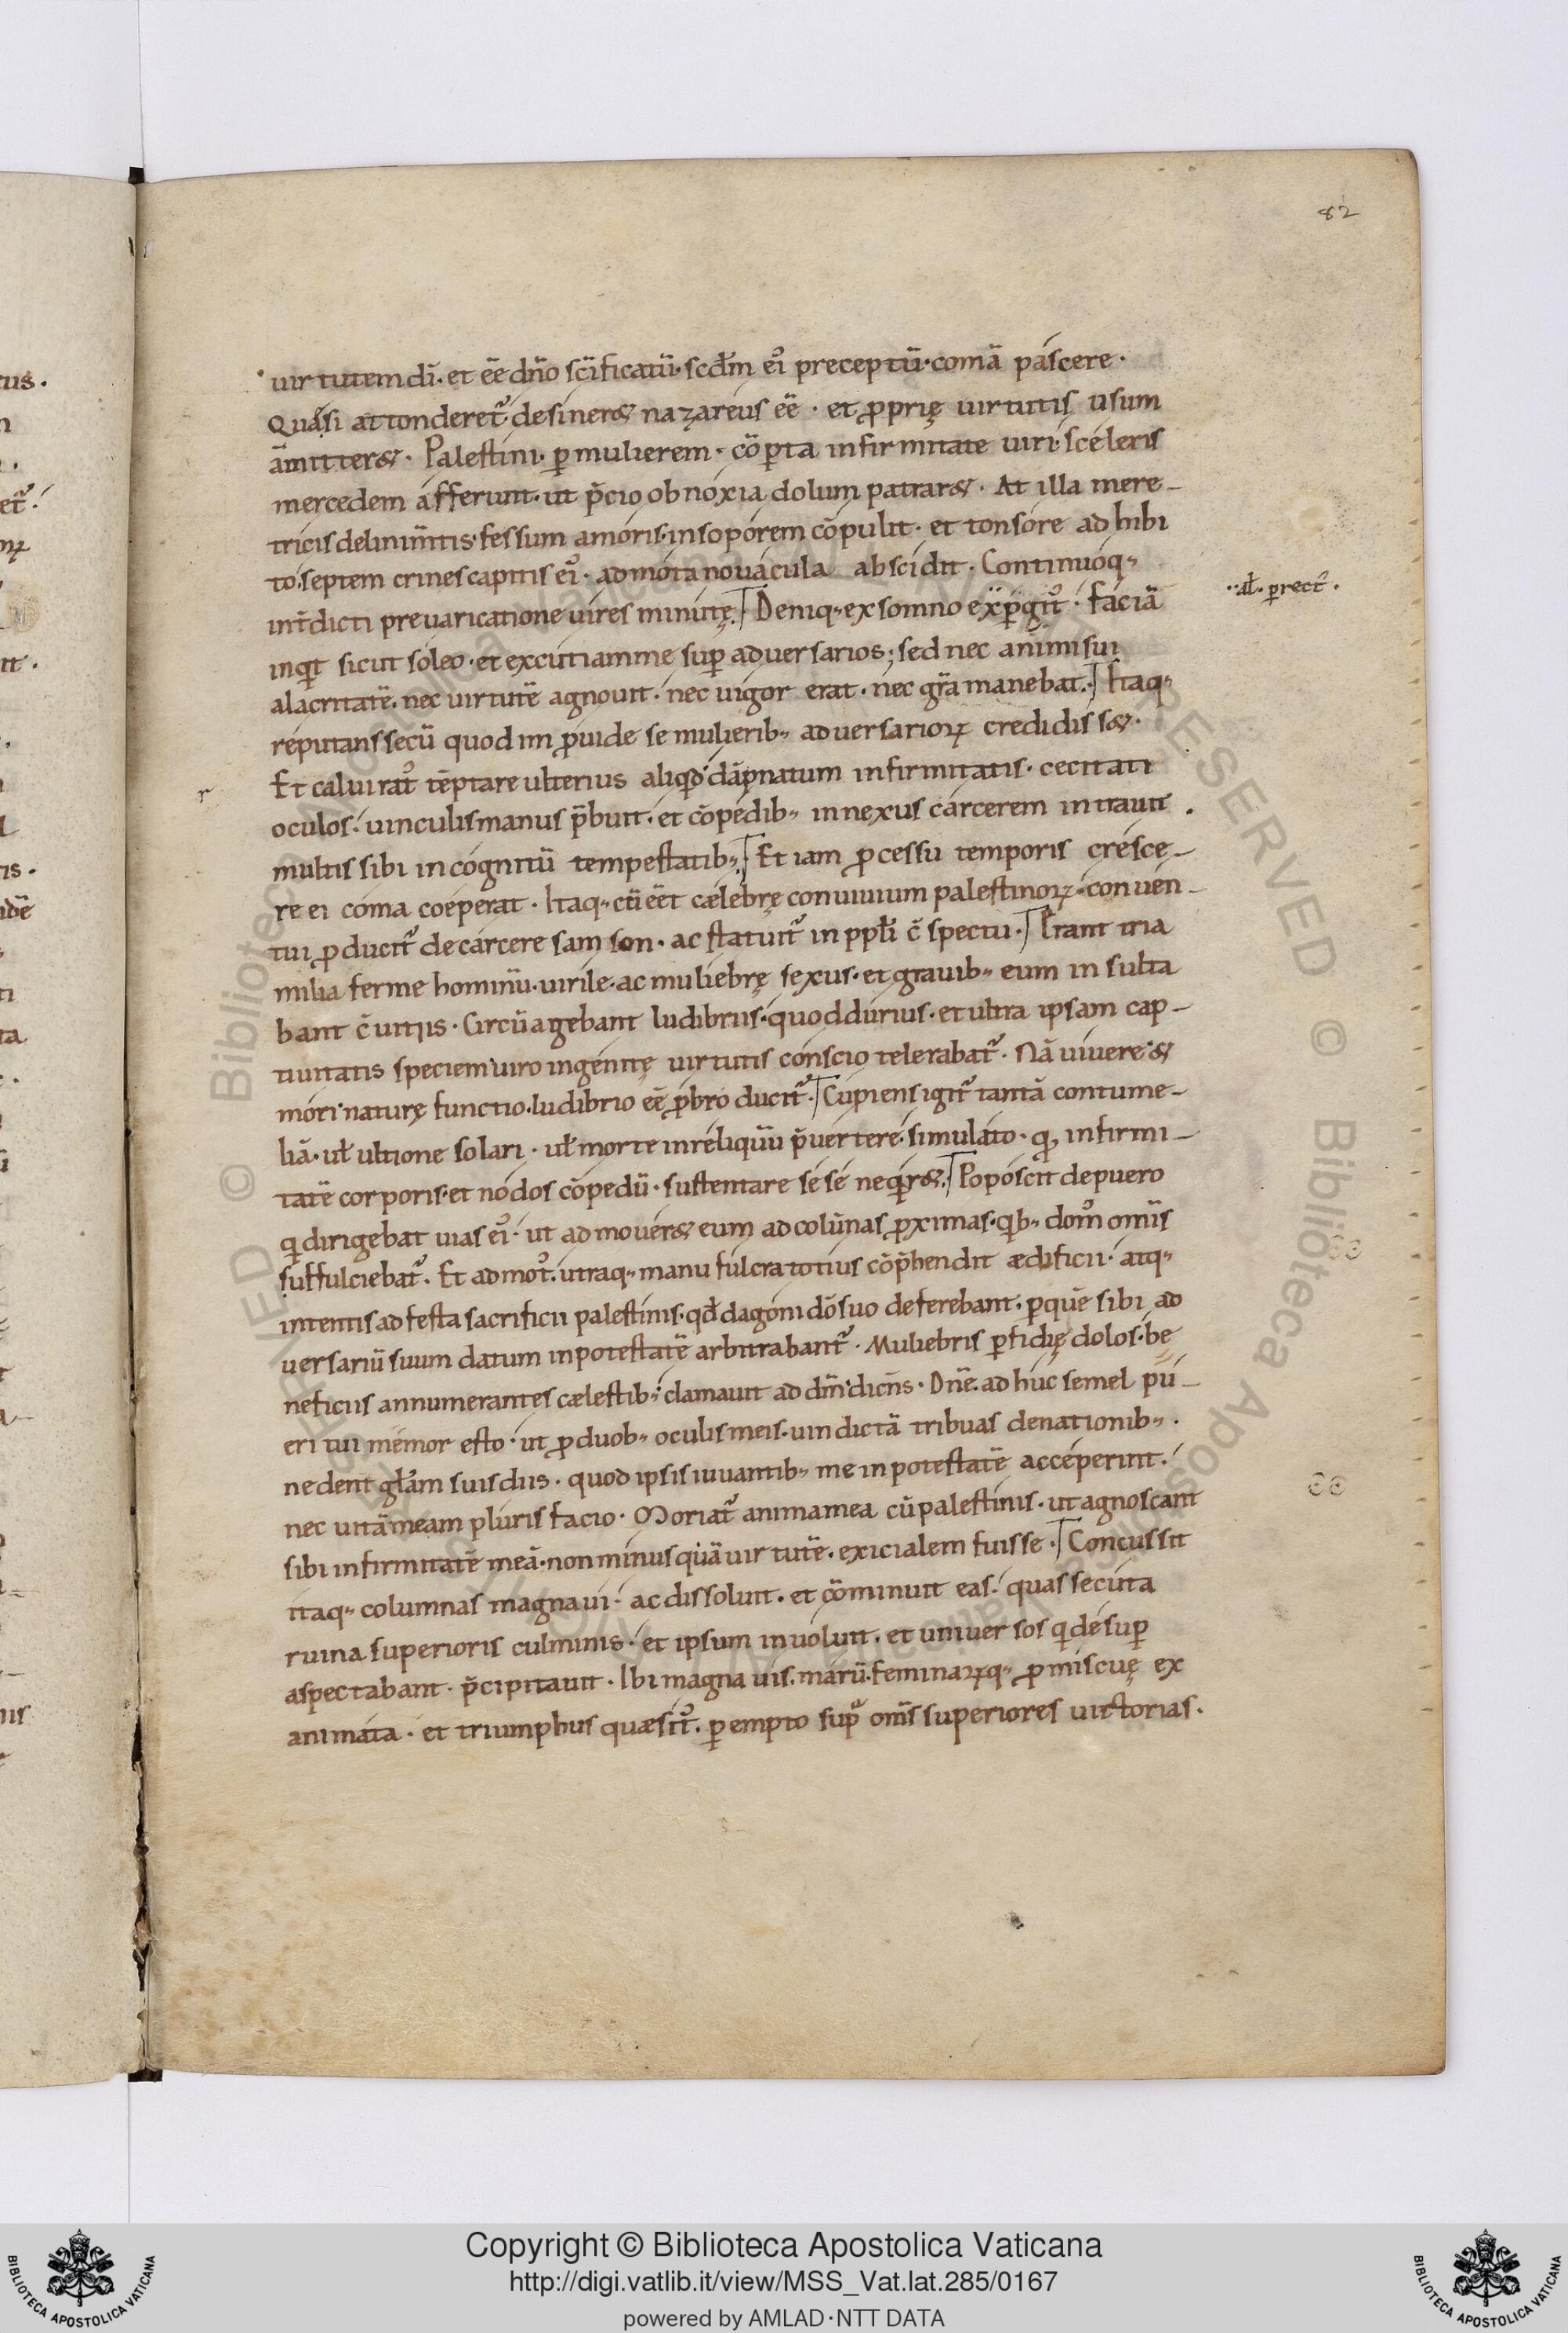 82
uirtutem dī. et ēē dn̄o sc̄ificatū. scd̄m ei᾽ preceptū. comā pascere.
Quasi attonderet᷑ desineret nazareus ēē. et ꝓprię uirtutis usum
āmitteret. Palestini. ꝑ mulierem. cōꝑta infirmitate uiri. sceleris
mercedem afferunt. ut p̄cio obnoxia dolum patraret. At illa mere-
tricis delinim̄tis. fessum amoris. in soporem cōpulit. et tonsore adhibi
to. septem crines capitis ei᾽. admota nouacula abscidit. Continuoq;
int̄dicti preuaricatione uires minutę. Deniq; ex somno exꝑgit᾽. faciā
..al̄. ꝑrect᾽.
inqͥt sicut soleo. et excutiam me suꝑ aduersarios; sed nec animi sui
alacritatē. nec uirtutē agnouit. nec uigor erat. nec gr̄a manebat. Itaq;
reputans secū quod imꝓuide se mulierib; aduersarioꝝ credidisset.
r
Et calui rat᾽ tēptare ulterius aliqͥd dāpnatum infirmitatis. cecitati
oculos. uinculis manus p̄buit. et cōpedib; innexus carcerem intrauit.
multis sibi incognitū tempestatib;. Et iam ꝓcessu temporis cresce-
re ei coma coeperat. Itaq; cū eēt cælebrę conuiuium palestinoꝝ. conuen-
tui ꝓducit᷑ de carcere samson. ac statuit᷑ in ppl̄i c̄spectu. Erant tria
milia ferme hominū. uirile. ac muliebrę sexus. et grauib; eum insulta
bant c̄uitiis. Circūagebant ludibriis. quod durius. et ultra ipsam cap-
tiuitatis speciem uiro ingenitę uirtutis conscio telerabat᷑. Nā uiuere. et
mori. naturę functio. ludibrio eē ꝓbro ducit᷑. Cupiens igit᷑ tantā contume-
liā. ul̄ ultione solari. ul̄ morte in reliquū p̄uertere. simulato. qͦ infirmi-
tatē corporis. et nodos cōpedū. sustentare sese neqͥret. Poposcit de puero
qͥ dirigebat uias ei᾽. ut admoueret eum ad colūnas ꝓximas. qͥb; dom᾽ omīs
suffulciebat᷑. Et admot᾽. utraq; manu fulcra totius cōp̄hendit ædificii. atq;
intentis ad festa sacrificii palestinis. qd̄ dagoni dō suo deferebant. ꝑ quē sibi ad
uersariū suum datum in potestatē arbitrabant᷑. Muliebris ꝑfidię dolos. be
neficiis annumerantes cælestib; clamauit ad dm̄ dicn̄s. Dn̄e. adhuc semel pu-
eri tui memor esto. ut ꝓ duob; oculis meis. uindictā tribuas de nationib;.
ne dent gl̄am suis diis. quod ipsis iuuantib; me in potestatē acceperint.
nec uitā meam pluris facio. Moriat᷑ anima mea cū palestinis. ut agnoscant
sibi infirmitatē meā. non minus quā uirtutē. exicialem fuisse. Concussit
itaq; columnas magna ui. ac dissoluit. et cōminuit eas. quas secuta
ruina superioris culminis. et ipsum inuoluit. et uniuersos qͥ desuꝑ
aspectabant. p̄cipitauit. Ibi magna uis. marū. feminaꝝq; ꝓmiscuę ex
animata. et triumphus quæsit᾽. ꝑempto supͣ omīs superiores uictorias.
Copyright © Biblioteca Apostolica Vaticana
http://digi.vatlib.it/view/MSS_Vat.lat.285/0167
powered by AMLAD·NTT DATA
BIBLIOTECA APOSTOLICA VATICANA
BIBLIOTECA APOSTOLICA VATICANA